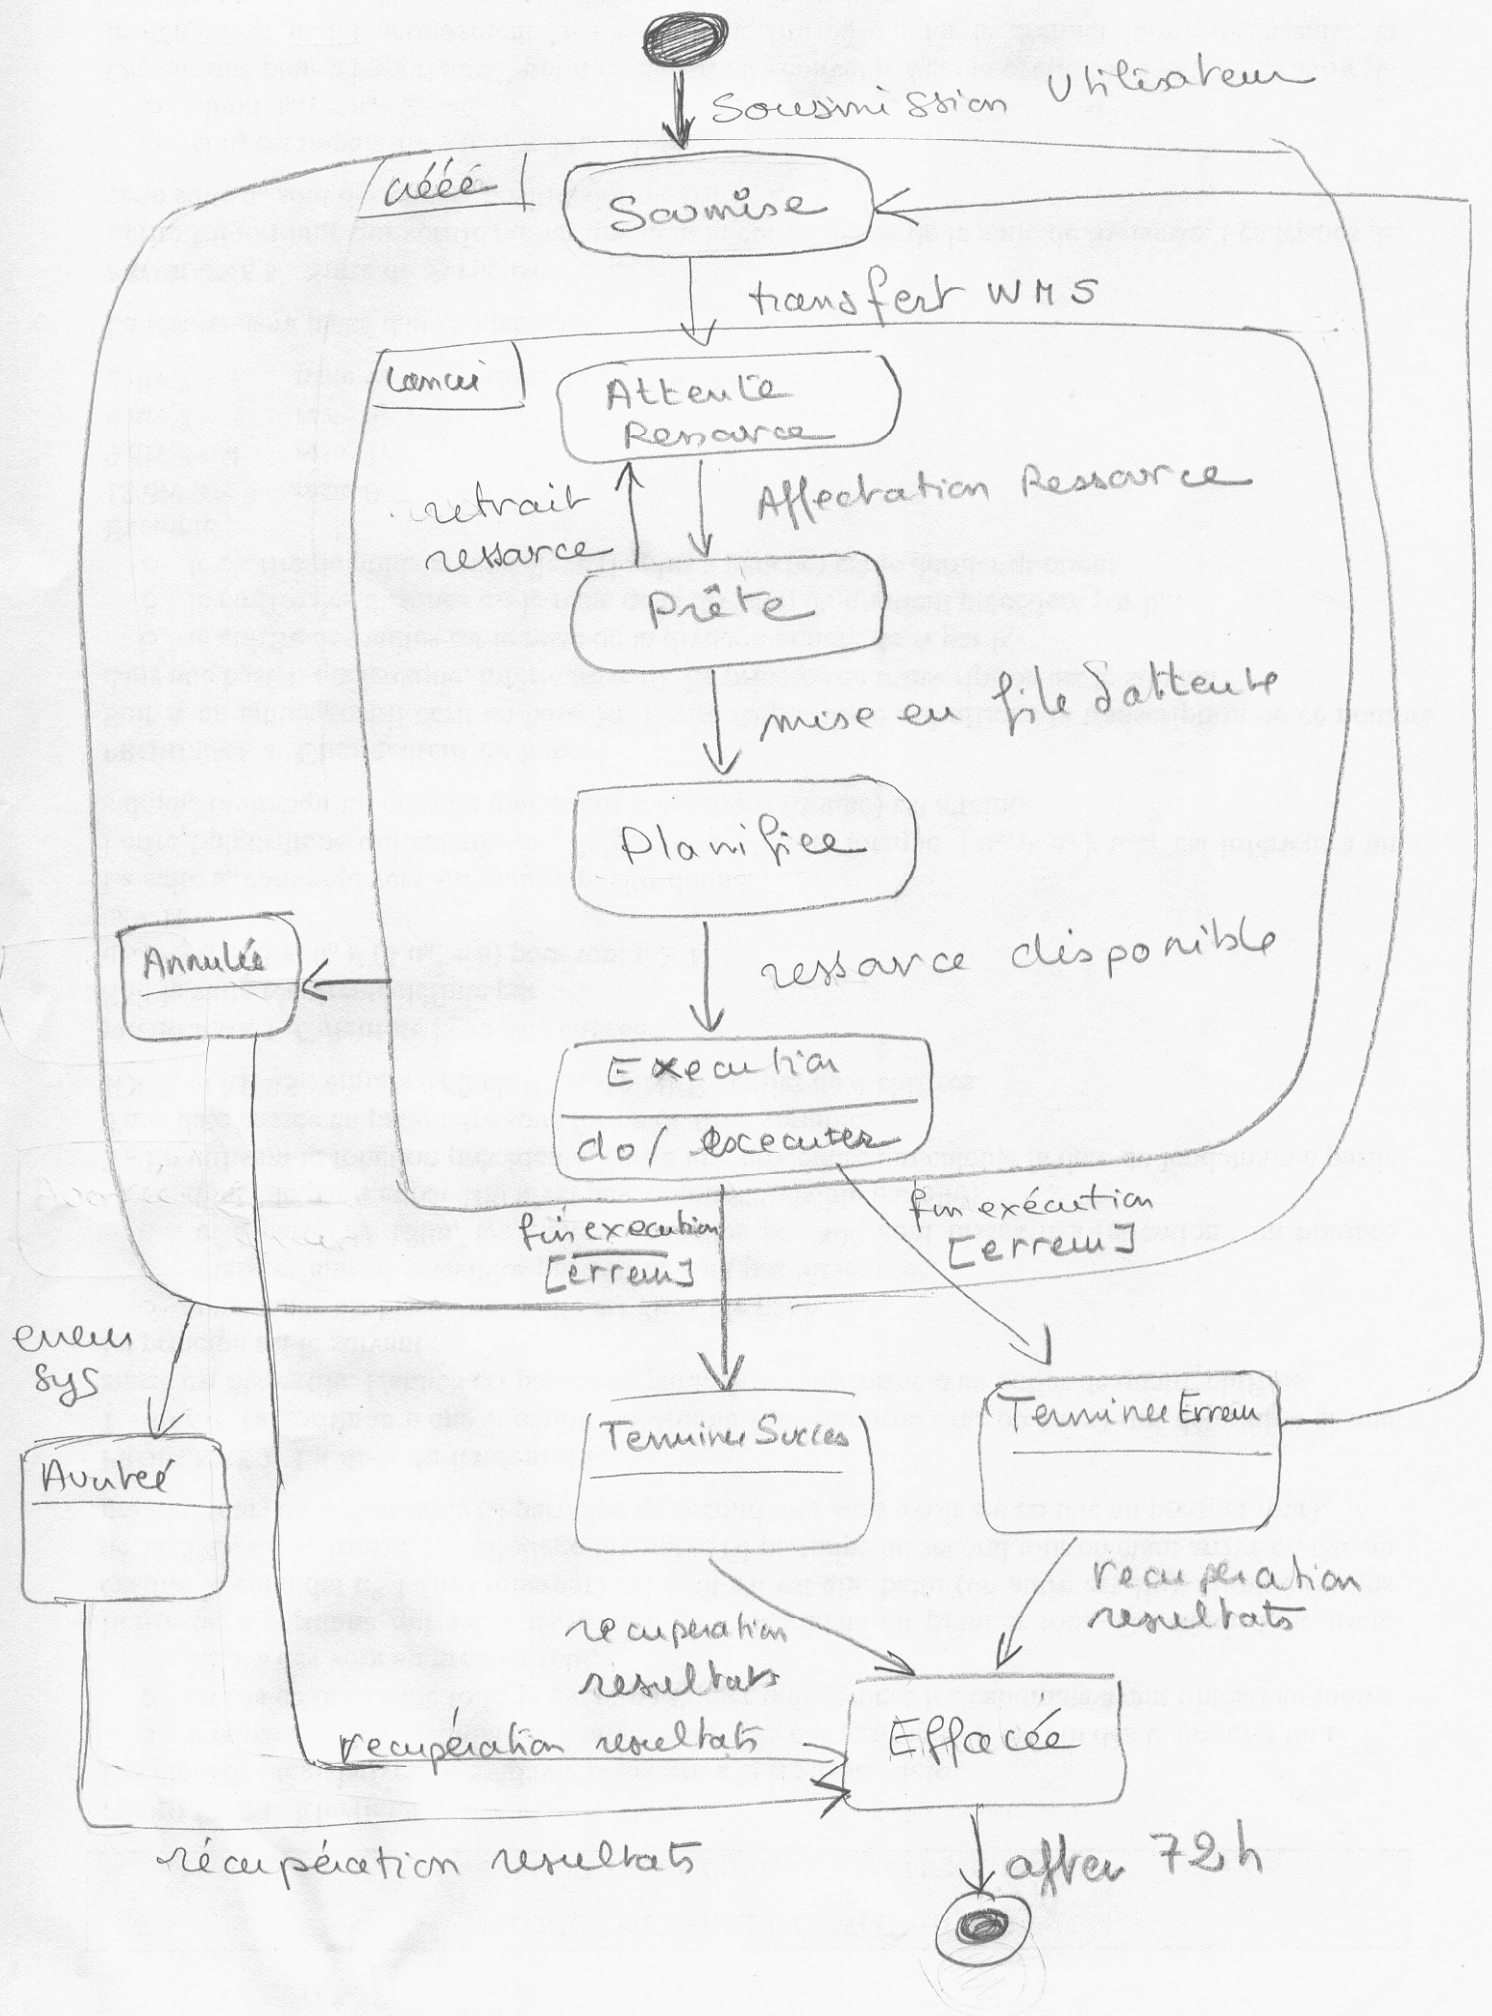 Sousmission Utilisateur
créée
Soumise
transfert WMS
Lancée
Attente
Ressource
retrait
ressource
Affectation Ressource
Prête
mise en file d'attente
Planifiee
ressource disponible
Annulée
Execution
do/ executer
fin execution
[erreur]
fin exécution
[erreur]
erreur
sys
Avortée
Terminee Succes
Terminee Erreur
recuperation
resultats
recuperation
resultats
recupération resultats
Effacée
récupération resultats
after 72h